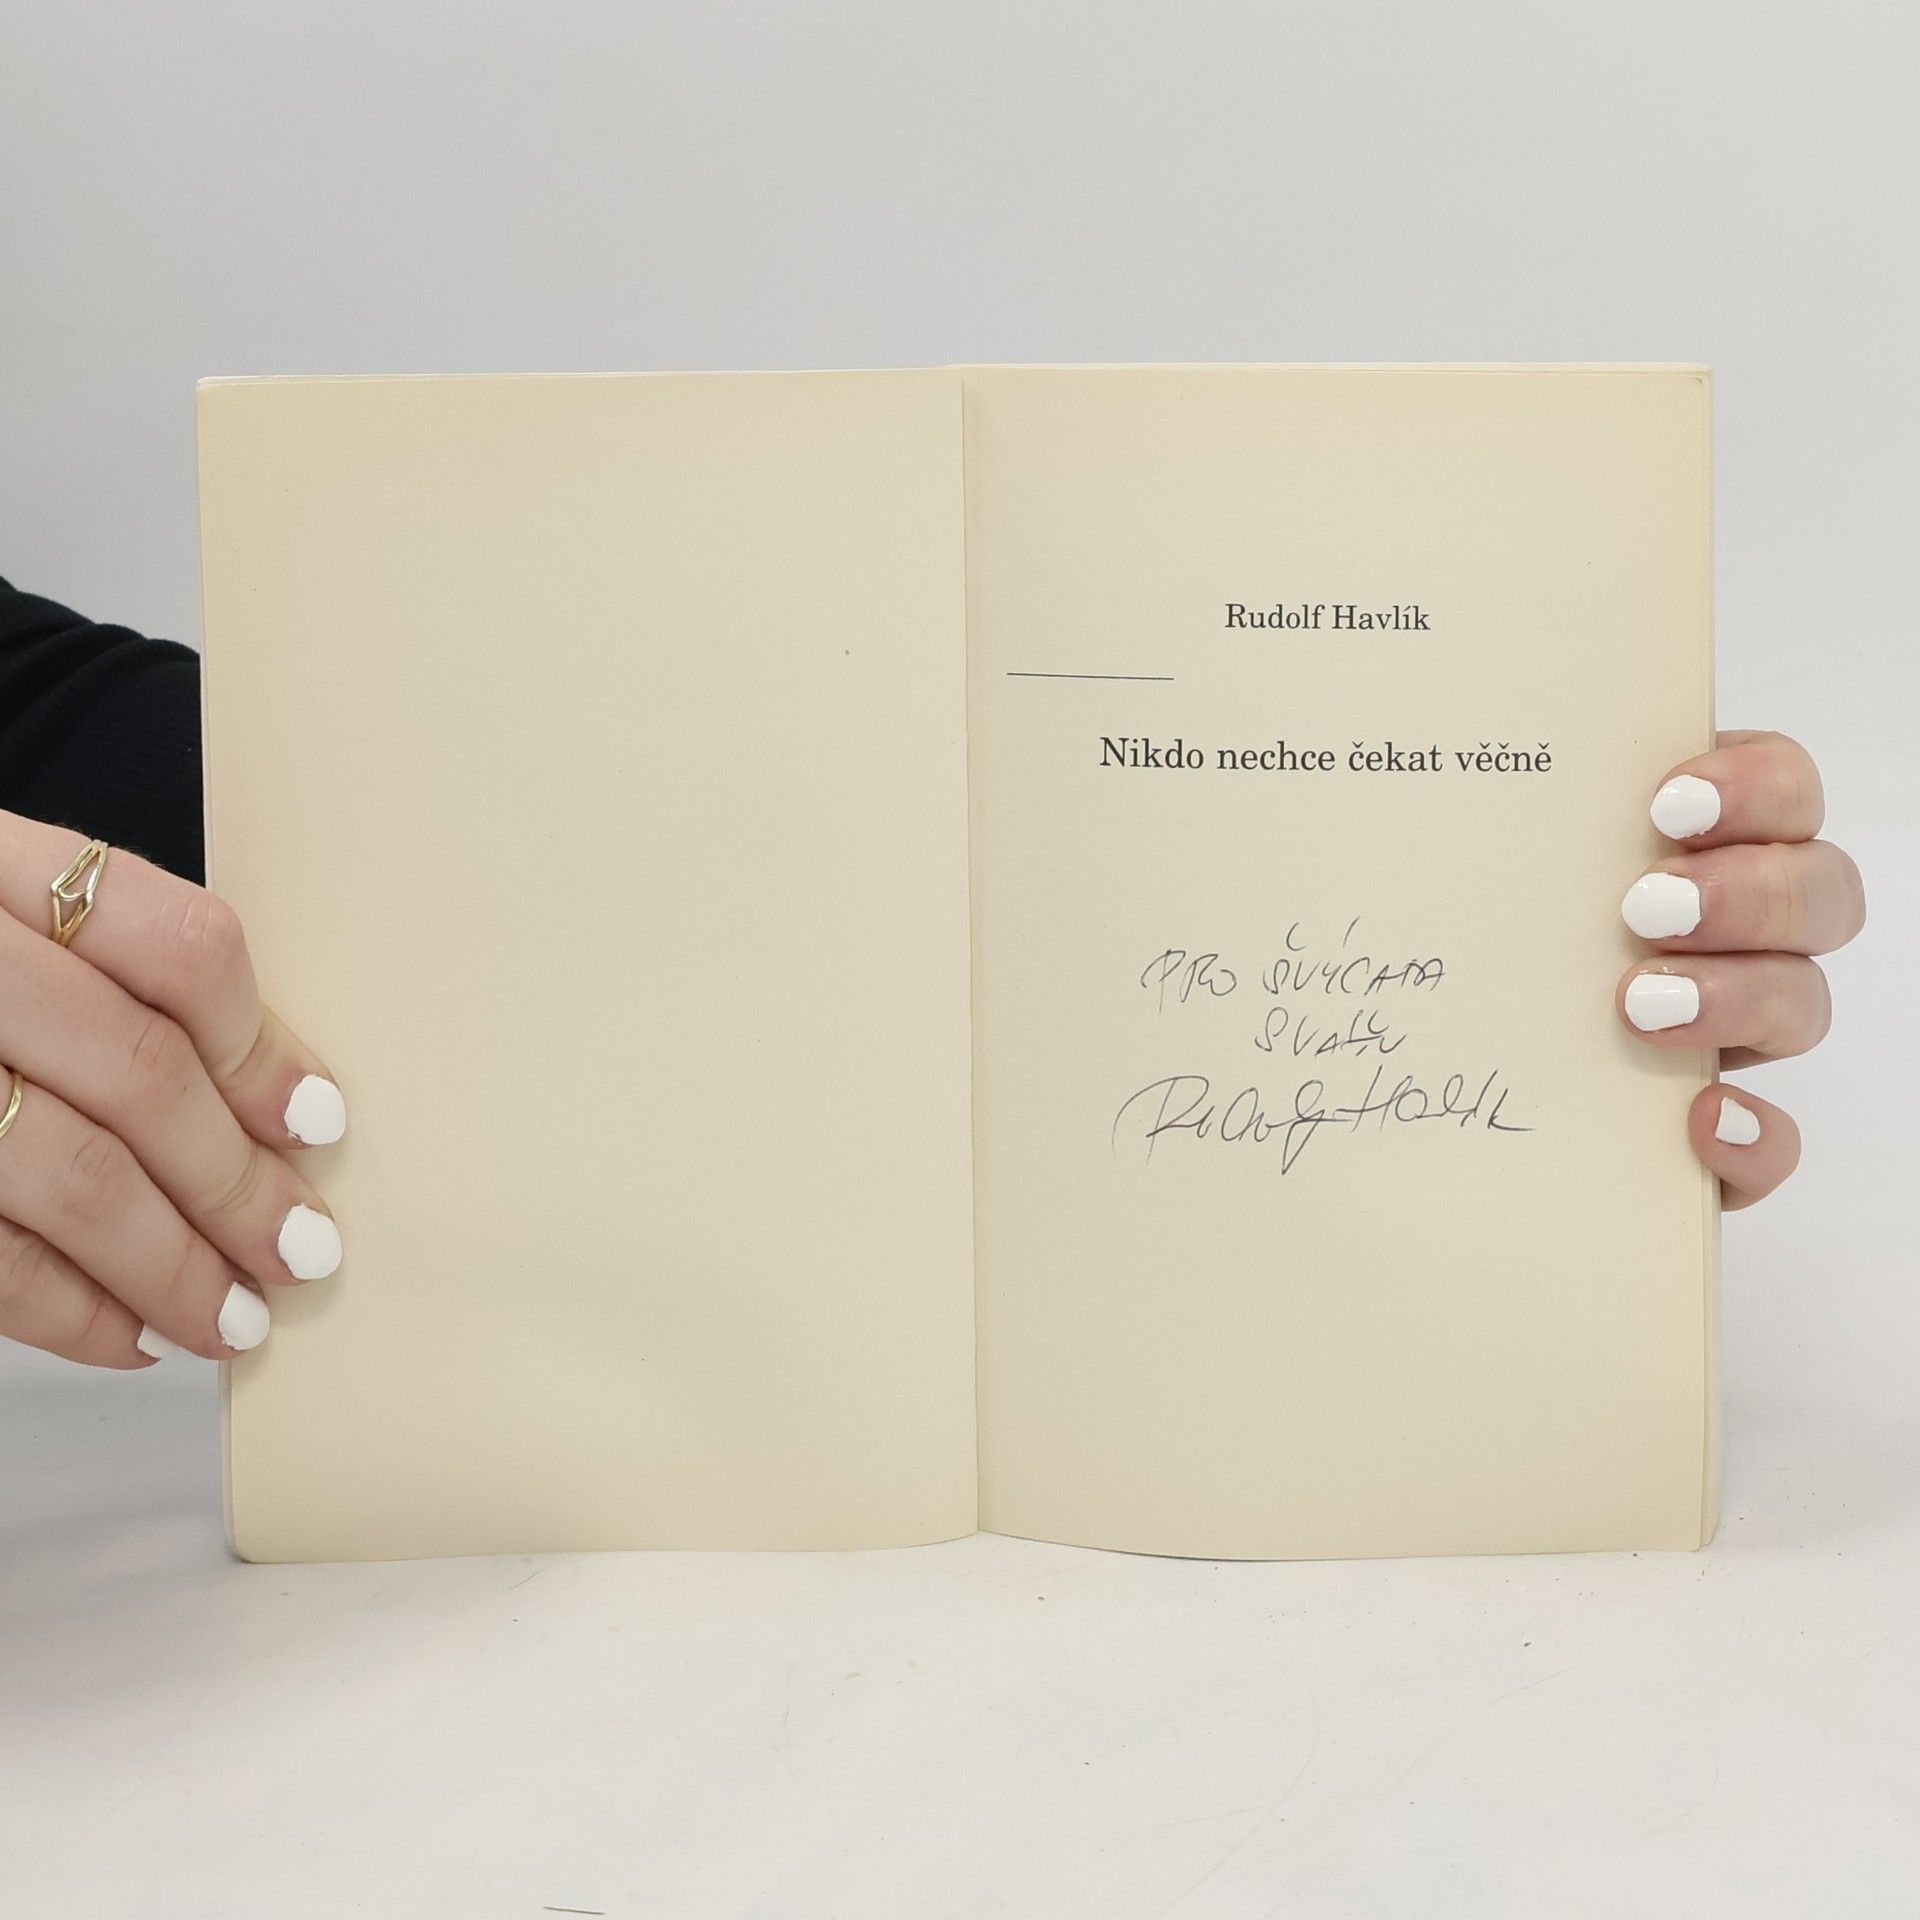 Rudolf Havlík
Nikdo nechce čekat věčně
PRO ŠVÝCARA
Rudolf Havlík